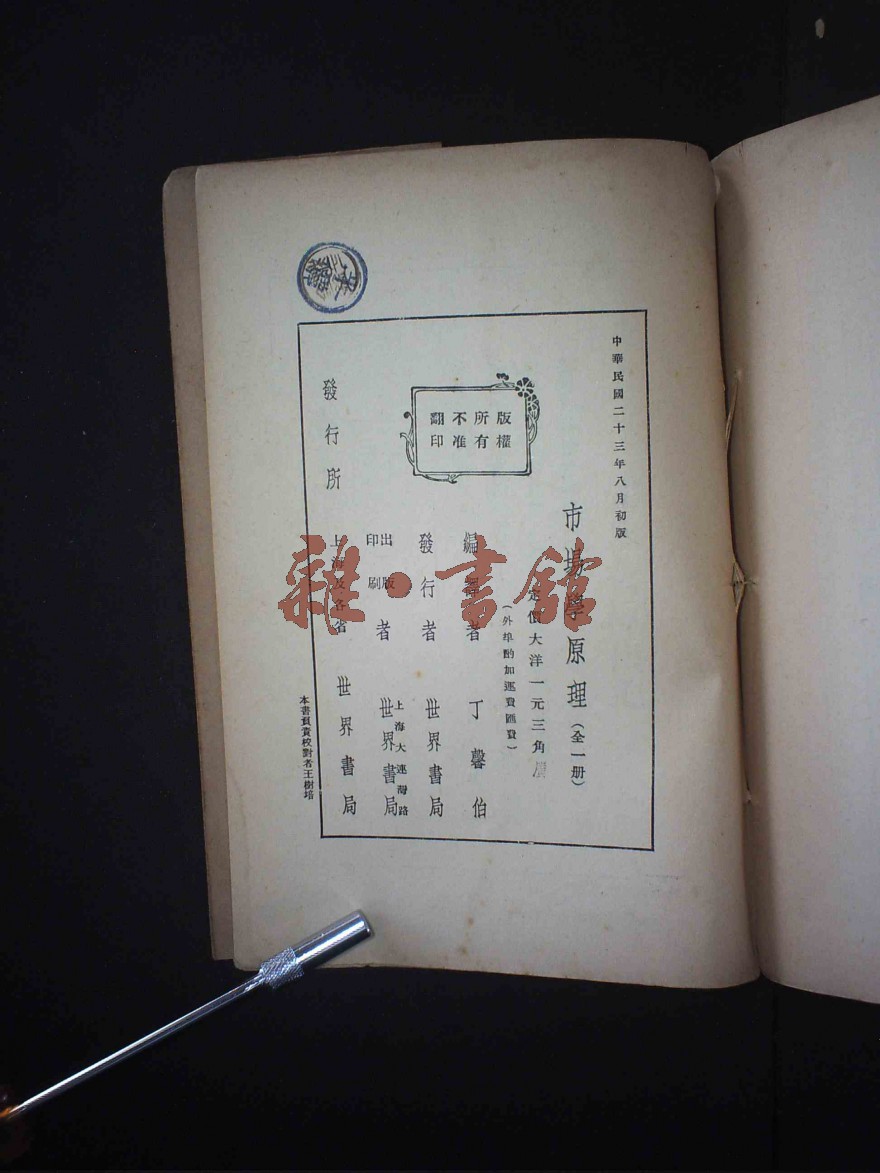 中華民國二十三年八月初版
市場學原理(全一册)
定價大洋一元三角
(外埠酌加運費匯費)
版權
所有
不准
翻印
編譯者 丁馨伯
發行者 世界書局
出版
印刷
者
上海大連灣路
世界書局
發行所 上海及各省 世界書局
本書負責校對者王樹培
雜·書館